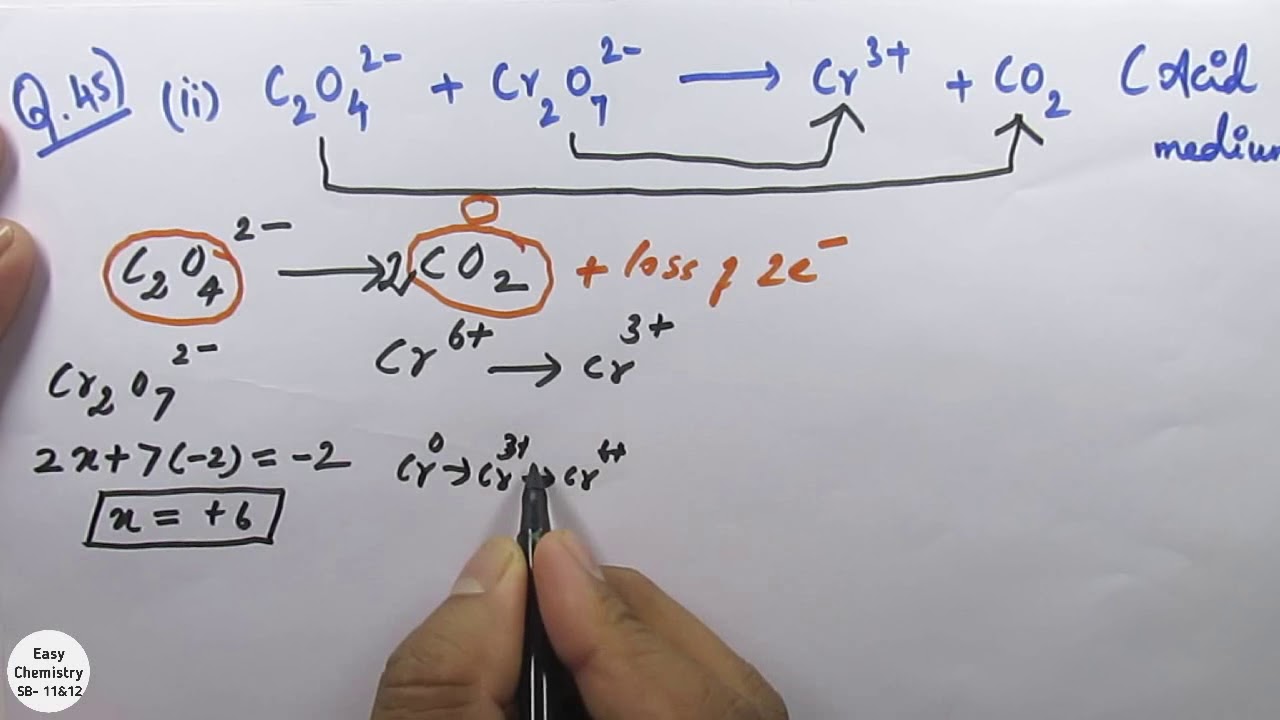 Q.45) (ii) C₂O₄²⁻ + Cr₂O₇²⁻ → Cr³⁺ + CO₂ (Acid
medium
C₂O₄²⁻ → 2CO₂ + loss of 2e⁻
Cr⁶⁺ → Cr³⁺
Cr₂O₇²⁻
2x+7(-2)=-2
Cr⁰→Cr³⁺→Cr⁶⁺
x = +6
Easy
Chemistry
SB- 11&12